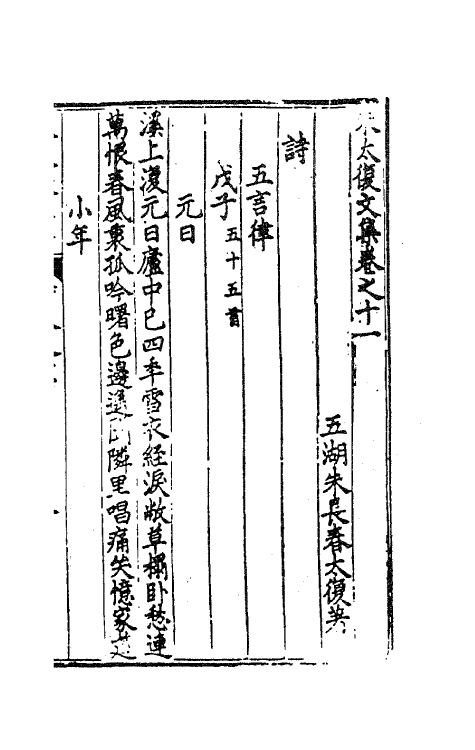 朱太復文集卷之十一
五湖朱長春太復著
詩
五言律
戊子五十五首
元日
溪上復元日廬中已四年雪衣經淚敝草榻卧愁連
萬恨春風裏孤吟曙色邊遥 隣里唱痛失憶家
小年